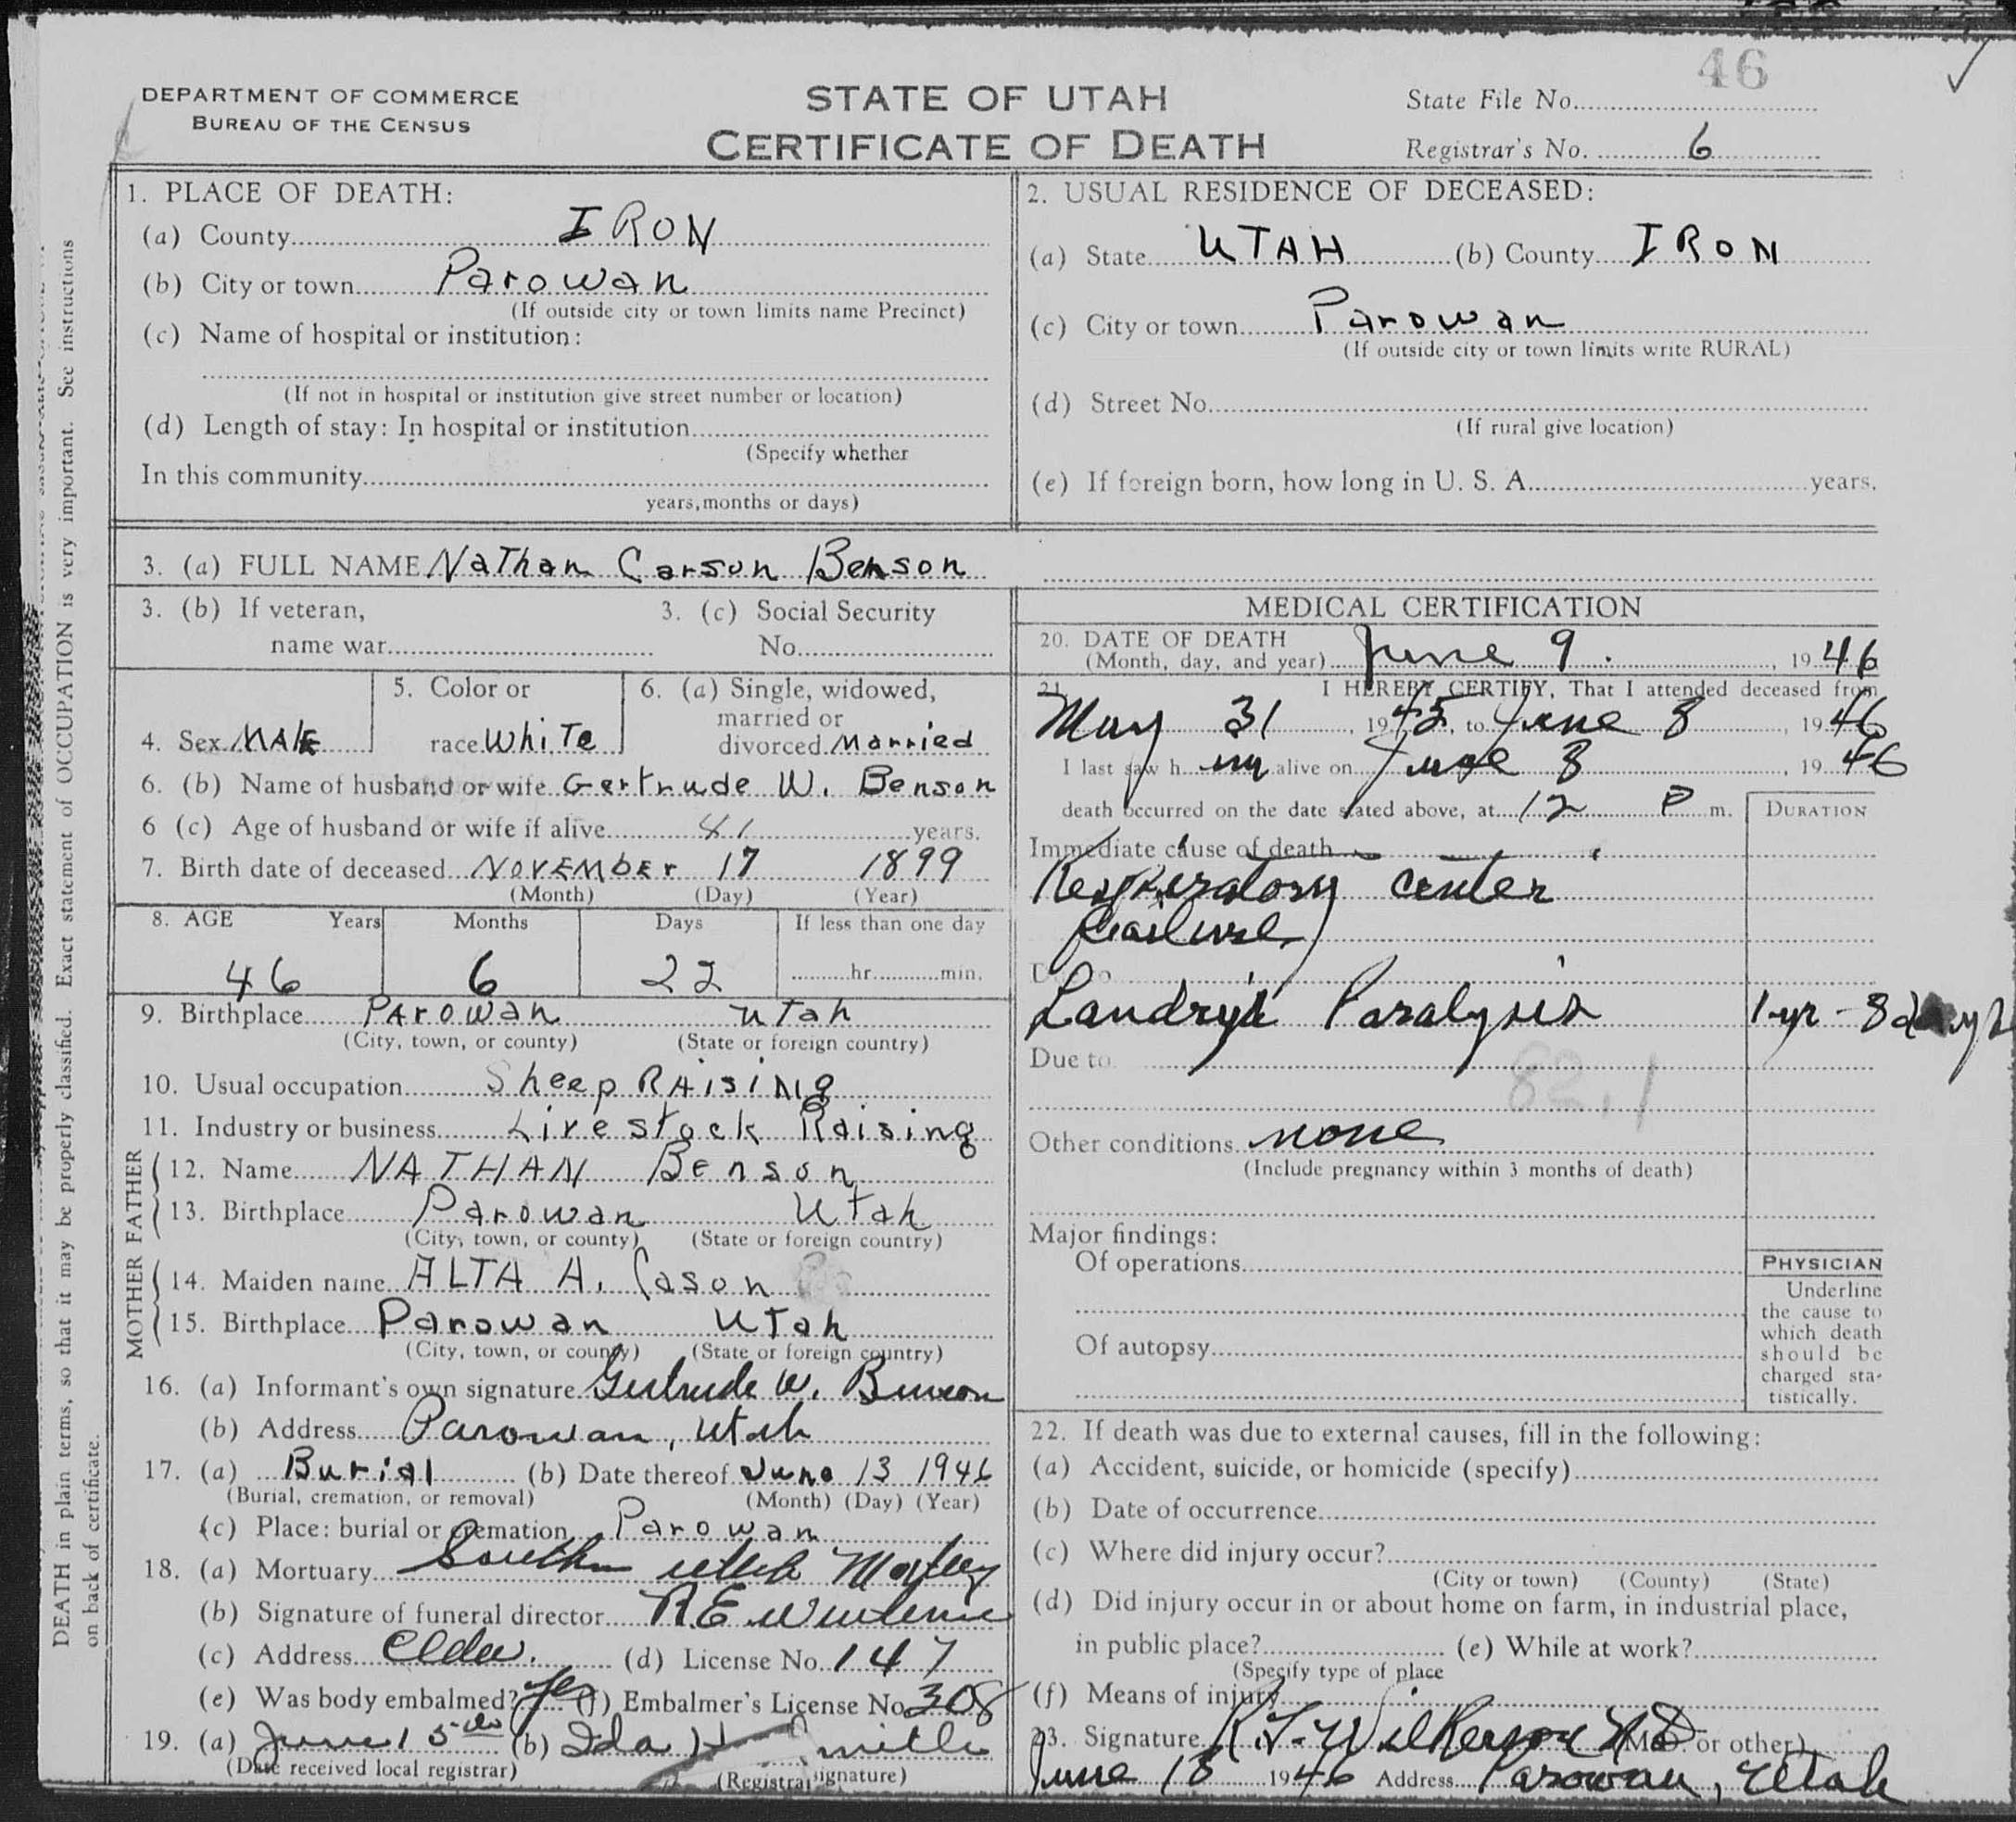 46
DEPARTMENT OF COMMERCE
BUREAU OF THE CENSUS
STATE OF UTAH
CERTIFICATE OF DEATH
State File No.
Registrar's No. 6
1. PLACE OF DEATH:
(a) County IRON
(b) City or town Parowan
(If outside city or town limits name Precinct)
(c) Name of hospital or institution:
(If not in hospital or institution give street number or location)
(d) Length of stay: In hospital or institution
(Specify whether
In this community
years, months or days)
2. USUAL RESIDENCE OF DECEASED:
(a) State UTAH (b) County IRON
(c) City or town Parowan
(If outside city or town limits write RURAL)
(d) Street No.
(If rural give location)
(e) If foreign born, how long in U. S. A. years.
3. (a) FULL NAME Nathan Carson Benson
3. (b) If veteran,
name war
3. (c) Social Security
No.
4. Sex MALE
5. Color or
race White
6. (a) Single, widowed,
married or
divorced Married
6. (b) Name of husband or wife Gertrude W. Benson
6 (c) Age of husband or wife if alive 41 years.
7. Birth date of deceased NOVEMBER 17 1899
(Month) (Day) (Year)
8. AGE Years Months Days If less than one day
46 6 22 hr. min.
9. Birthplace Parowan Utah
(City, town, or county) (State or foreign country)
10. Usual occupation Sheep RAISING
11. Industry or business Livestock Raising
FATHER
12. Name NATHAN Benson
13. Birthplace Parowan Utah
(City, town, or county) (State or foreign country)
MOTHER
14. Maiden name ALTA A. Cason
15. Birthplace Parowan Utah
(City, town, or county) (State or foreign country)
16. (a) Informant's own signature Gertrude W. Benson
(b) Address Parowan, Utah
17. (a) Burial (b) Date thereof June 13 1946
(Burial, cremation, or removal) (Month) (Day) (Year)
(c) Place: burial or cremation Parowan
18. (a) Mortuary Southern Utah Mortuary
(b) Signature of funeral director R.E.
(c) Address (d) License No. 147
(e) Was body embalmed? Yes (f) Embalmer's License No. 308
19. (a) June 15th (b) Ida H
(Date received local registrar) (Registrar signature)
MEDICAL CERTIFICATION
20. DATE OF DEATH
(Month, day, and year) June 9. , 1946
21. I HEREBY CERTIFY, That I attended deceased from
May 31, 1945, to June 8, 1946
I last saw him alive on June 8, 1946
death occurred on the date stated above, at 12 P m.
DURATION
Immediate cause of death
Respiratory center
failure
Due to
Landry's Paralysis 1 yr - 8 days
Due to
82.1
Other conditions none
(Include pregnancy within 3 months of death)
Major findings:
Of operations
Of autopsy
PHYSICIAN
Underline
the cause to
which death
should be
charged sta-
tistically.
22. If death was due to external causes, fill in the following:
(a) Accident, suicide, or homicide (specify)
(b) Date of occurrence
(c) Where did injury occur?
(City or town) (County) (State)
(d) Did injury occur in or about home on farm, in industrial place,
in public place? (e) While at work?
(Specify type of place
(f) Means of injury
23. Signature Wilkerson MD (M.D. or other)
June 1946 Address Parowan, Utah
DEATH in plain terms, so that it may be properly classified. Exact statement of OCCUPATION is very important. See instructions
on back of certificate.